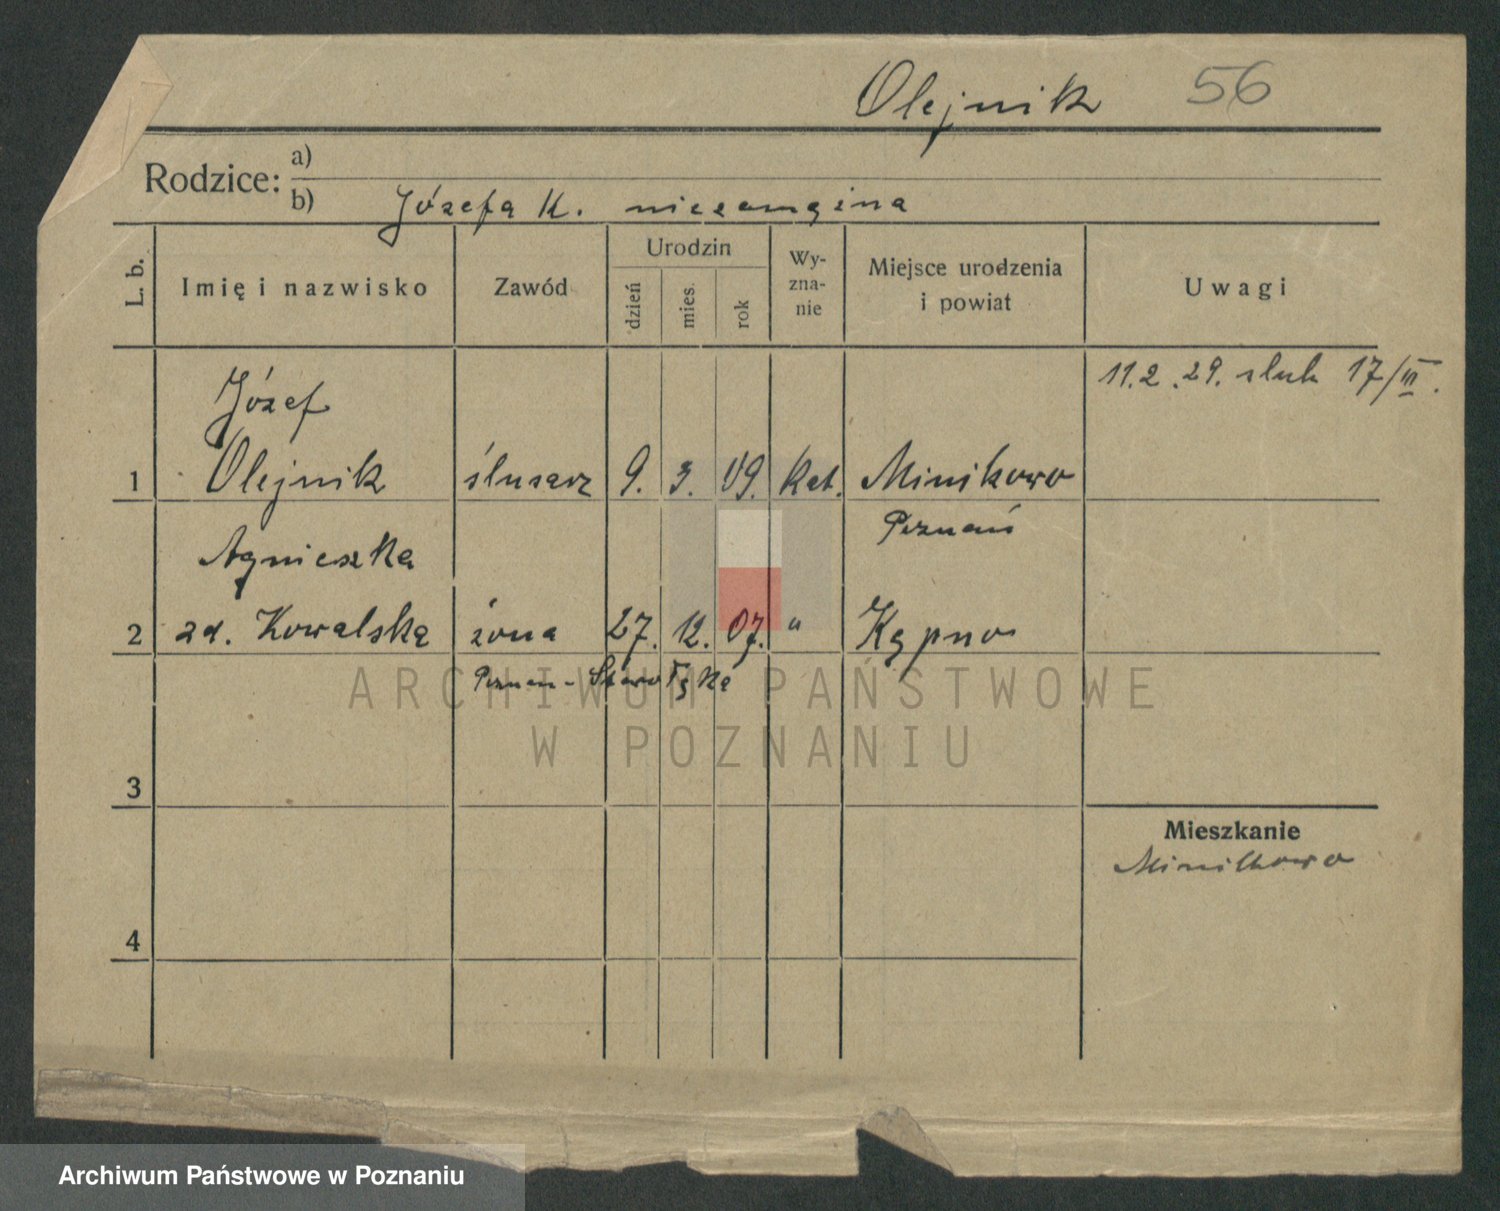 Olejnik 56
Rodzice: a)
b) Józefa K. niezamężna
L. b.
Imię i nazwisko
Zawód
Urodzin
dzień
mies.
rok
Wy-
zna-
nie
Miejsce urodzenia
i powiat
Uwagi
11.2.29. ślub 17/VI.
Józef
1 Olejnik ślusarz 9. 3. 09. kat. Minikowo
Poznań
Agnieszka
2 zd. Kowalska żona 27. 12. 07. " Kępno
Poznań - Starołęka
ARCHIWUM PAŃSTWOWE
W POZNANIU
3
Mieszkanie
Minikowo
4
Archiwum Państwowe w Poznaniu